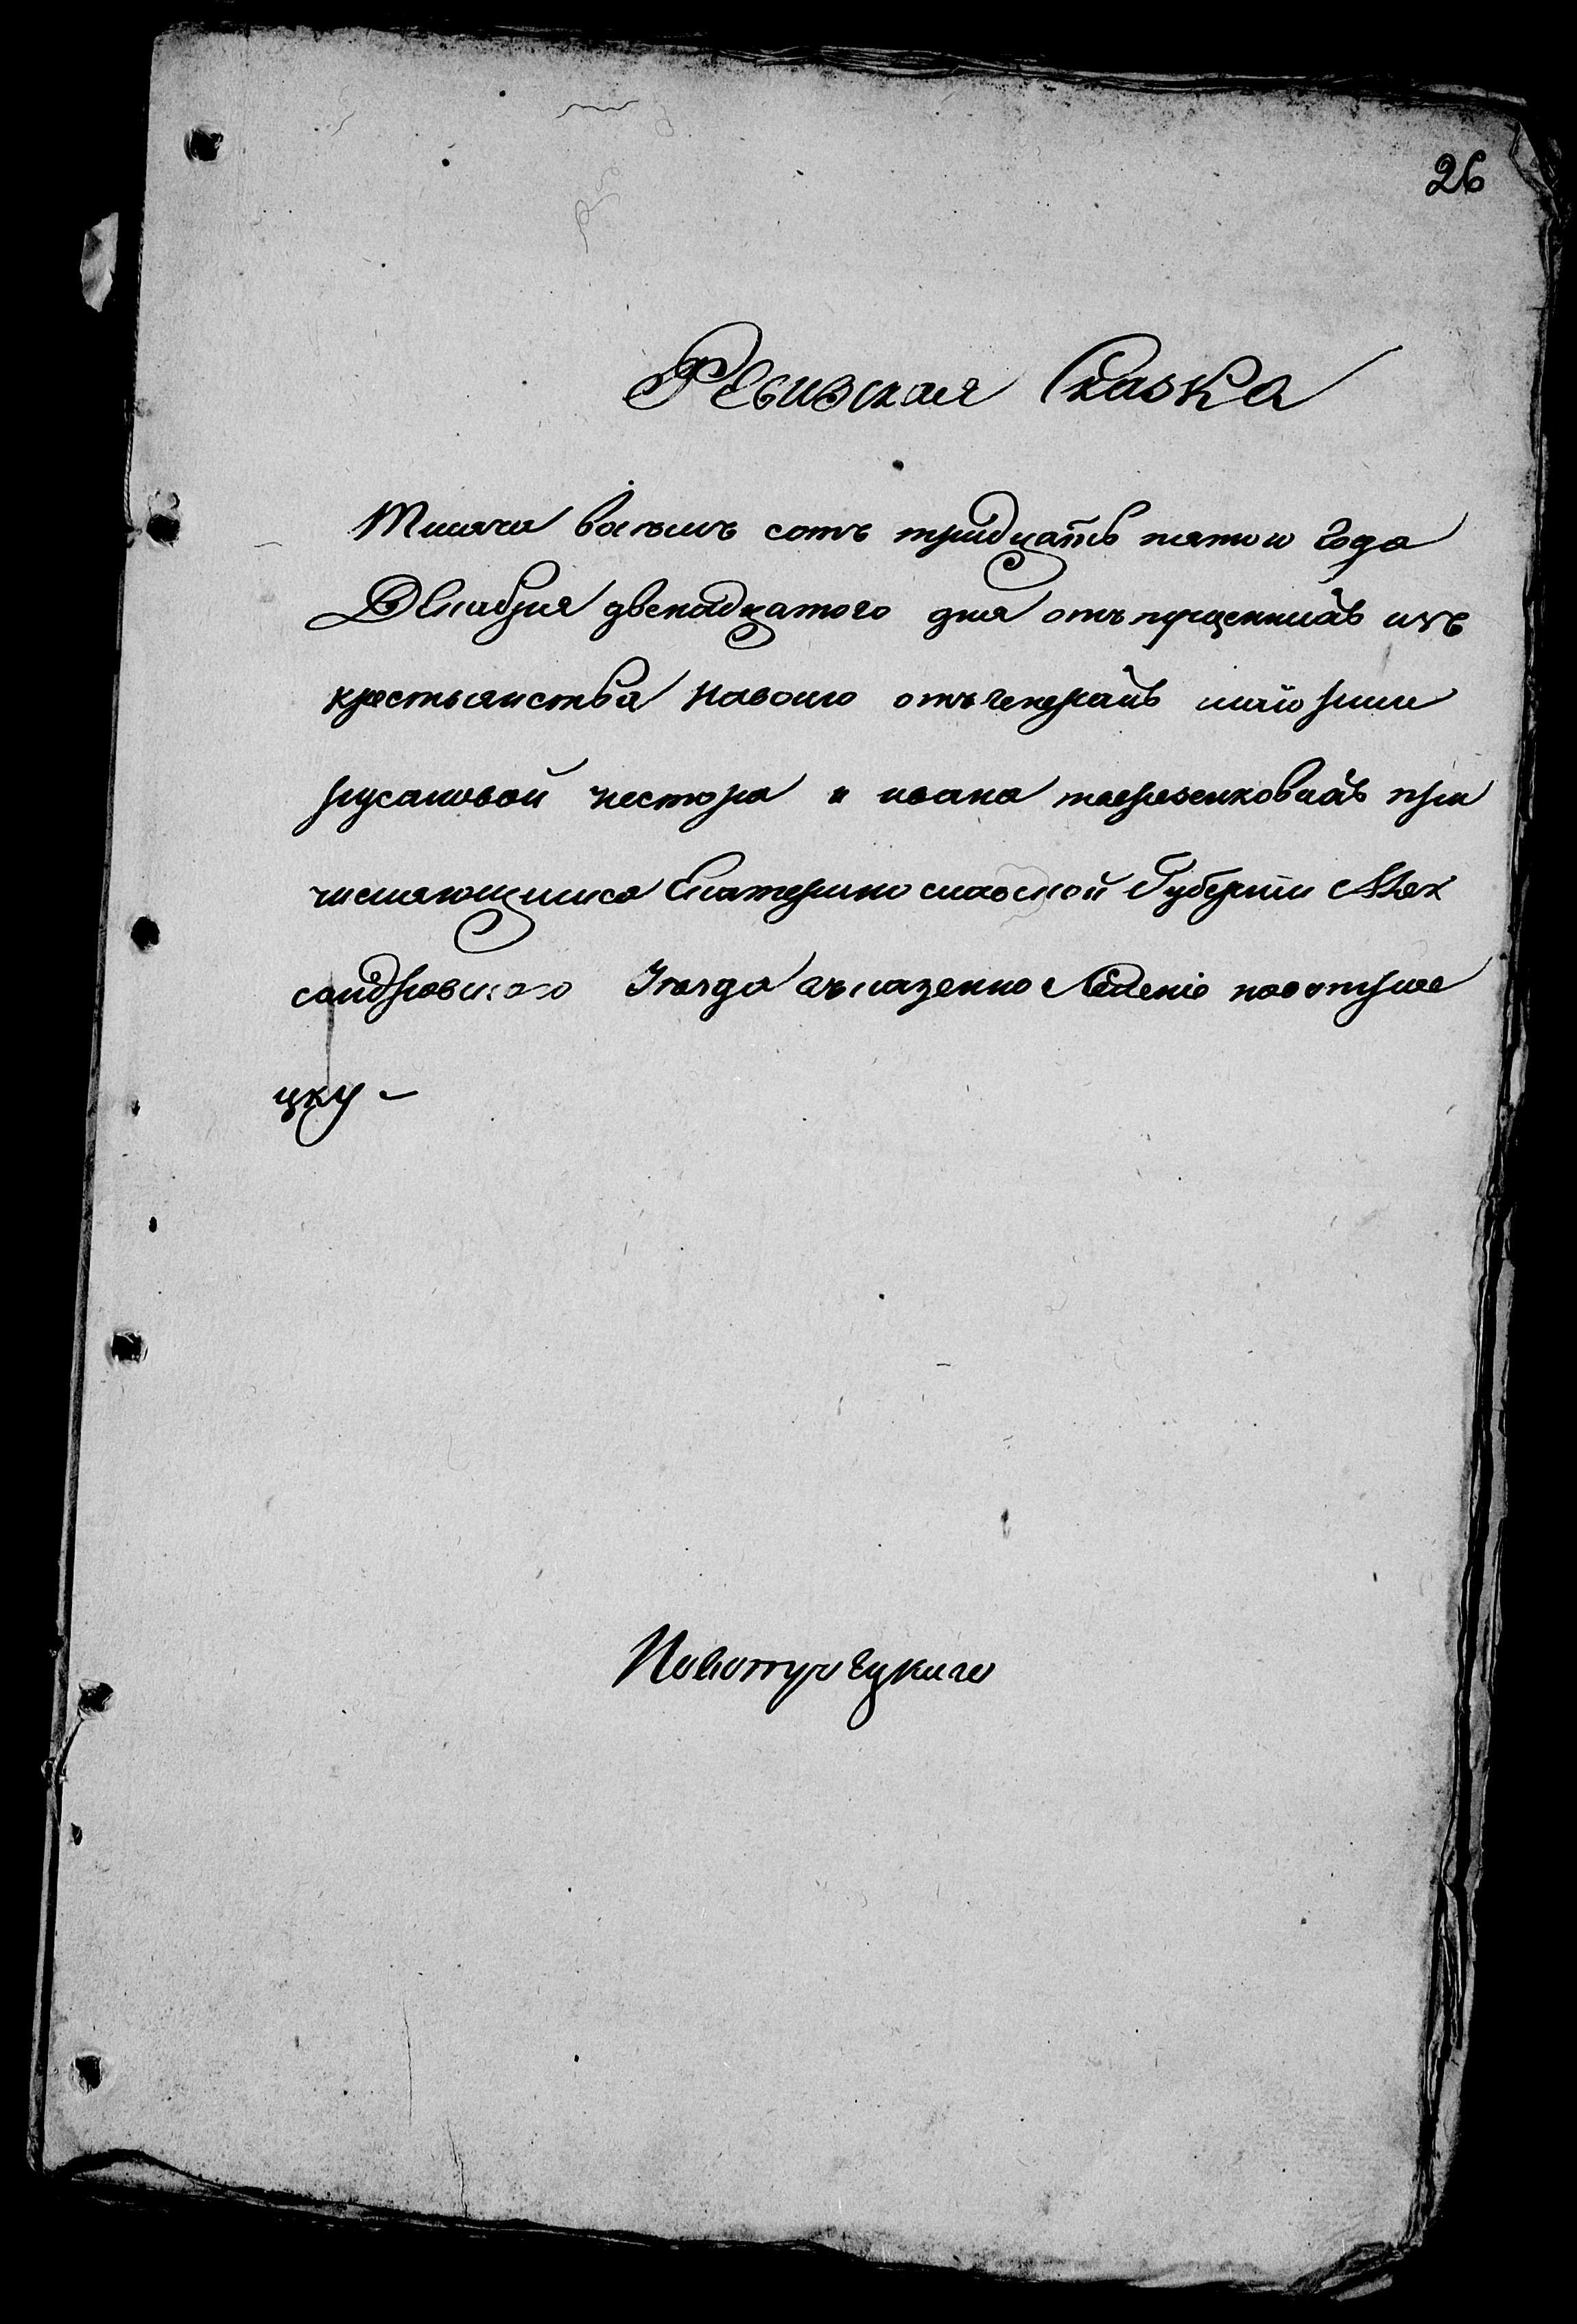 26
Ревизская Сказка
Тисяча восемъ сотъ тридцать пятого года
Декабря двенадцатого дня отъпущенныхъ изъ
крестьянства на волю отъ генералъ маиорши
русановой нестора и ивана терезенковыхъ при
числяющихся Екатеринославской Губерніи Алек
сандровского Уезда
цку